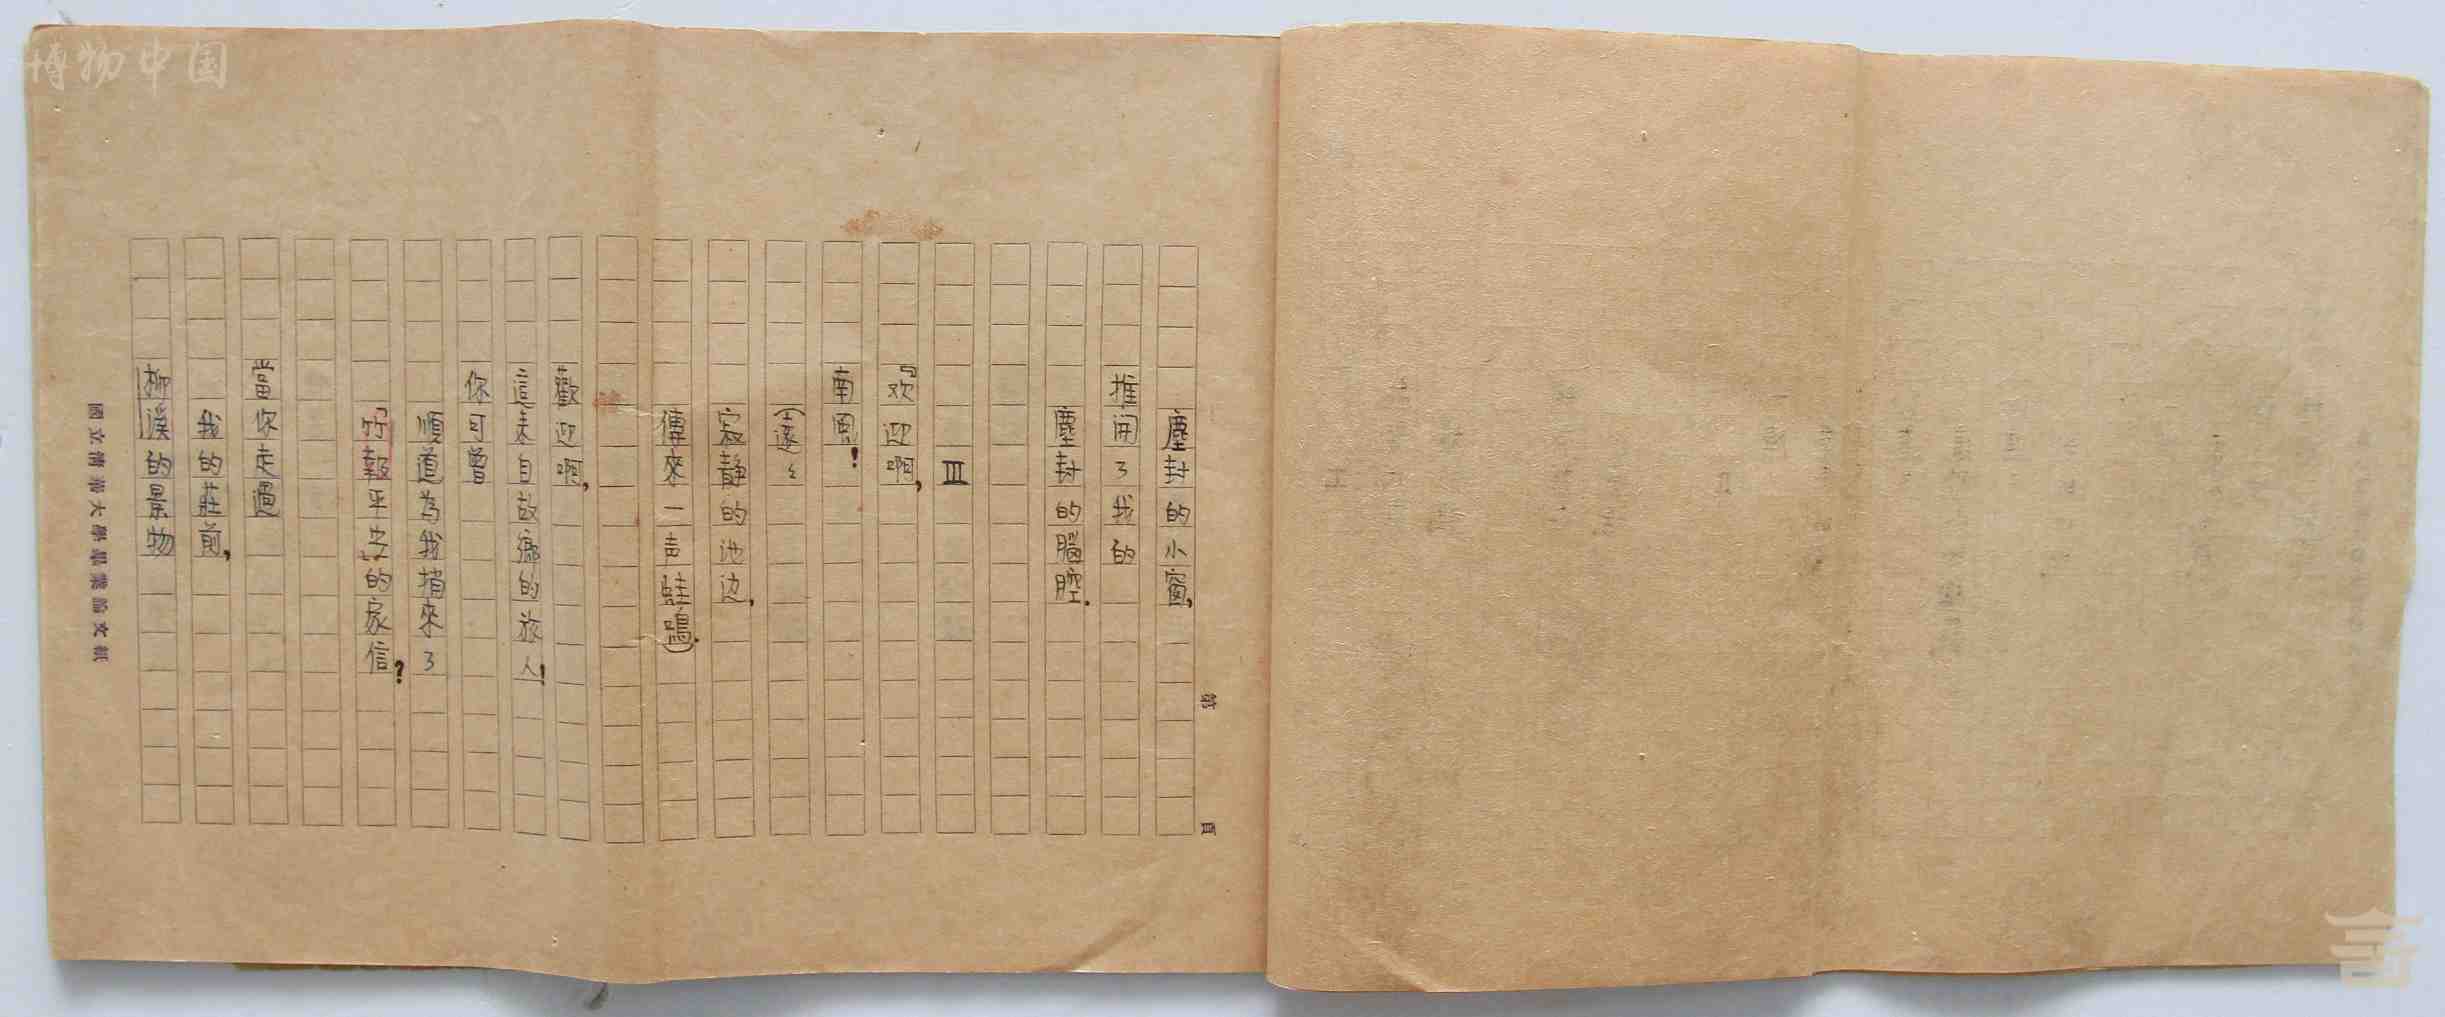 塵封的小窗，
推開了我的
塵封的腦腔．
III
『欢迎啊，
南園！
（遠々
寂静的池边，
傳來一声蛙鳴．）
歡迎啊，
這來自故鄉的旅人！
你可曾
順道为我捎來了
“竹報平安”的家信？
當你走過
我的莊前，
柳溪的景物
國立清華大學畢業論文紙
第 頁
博物中国